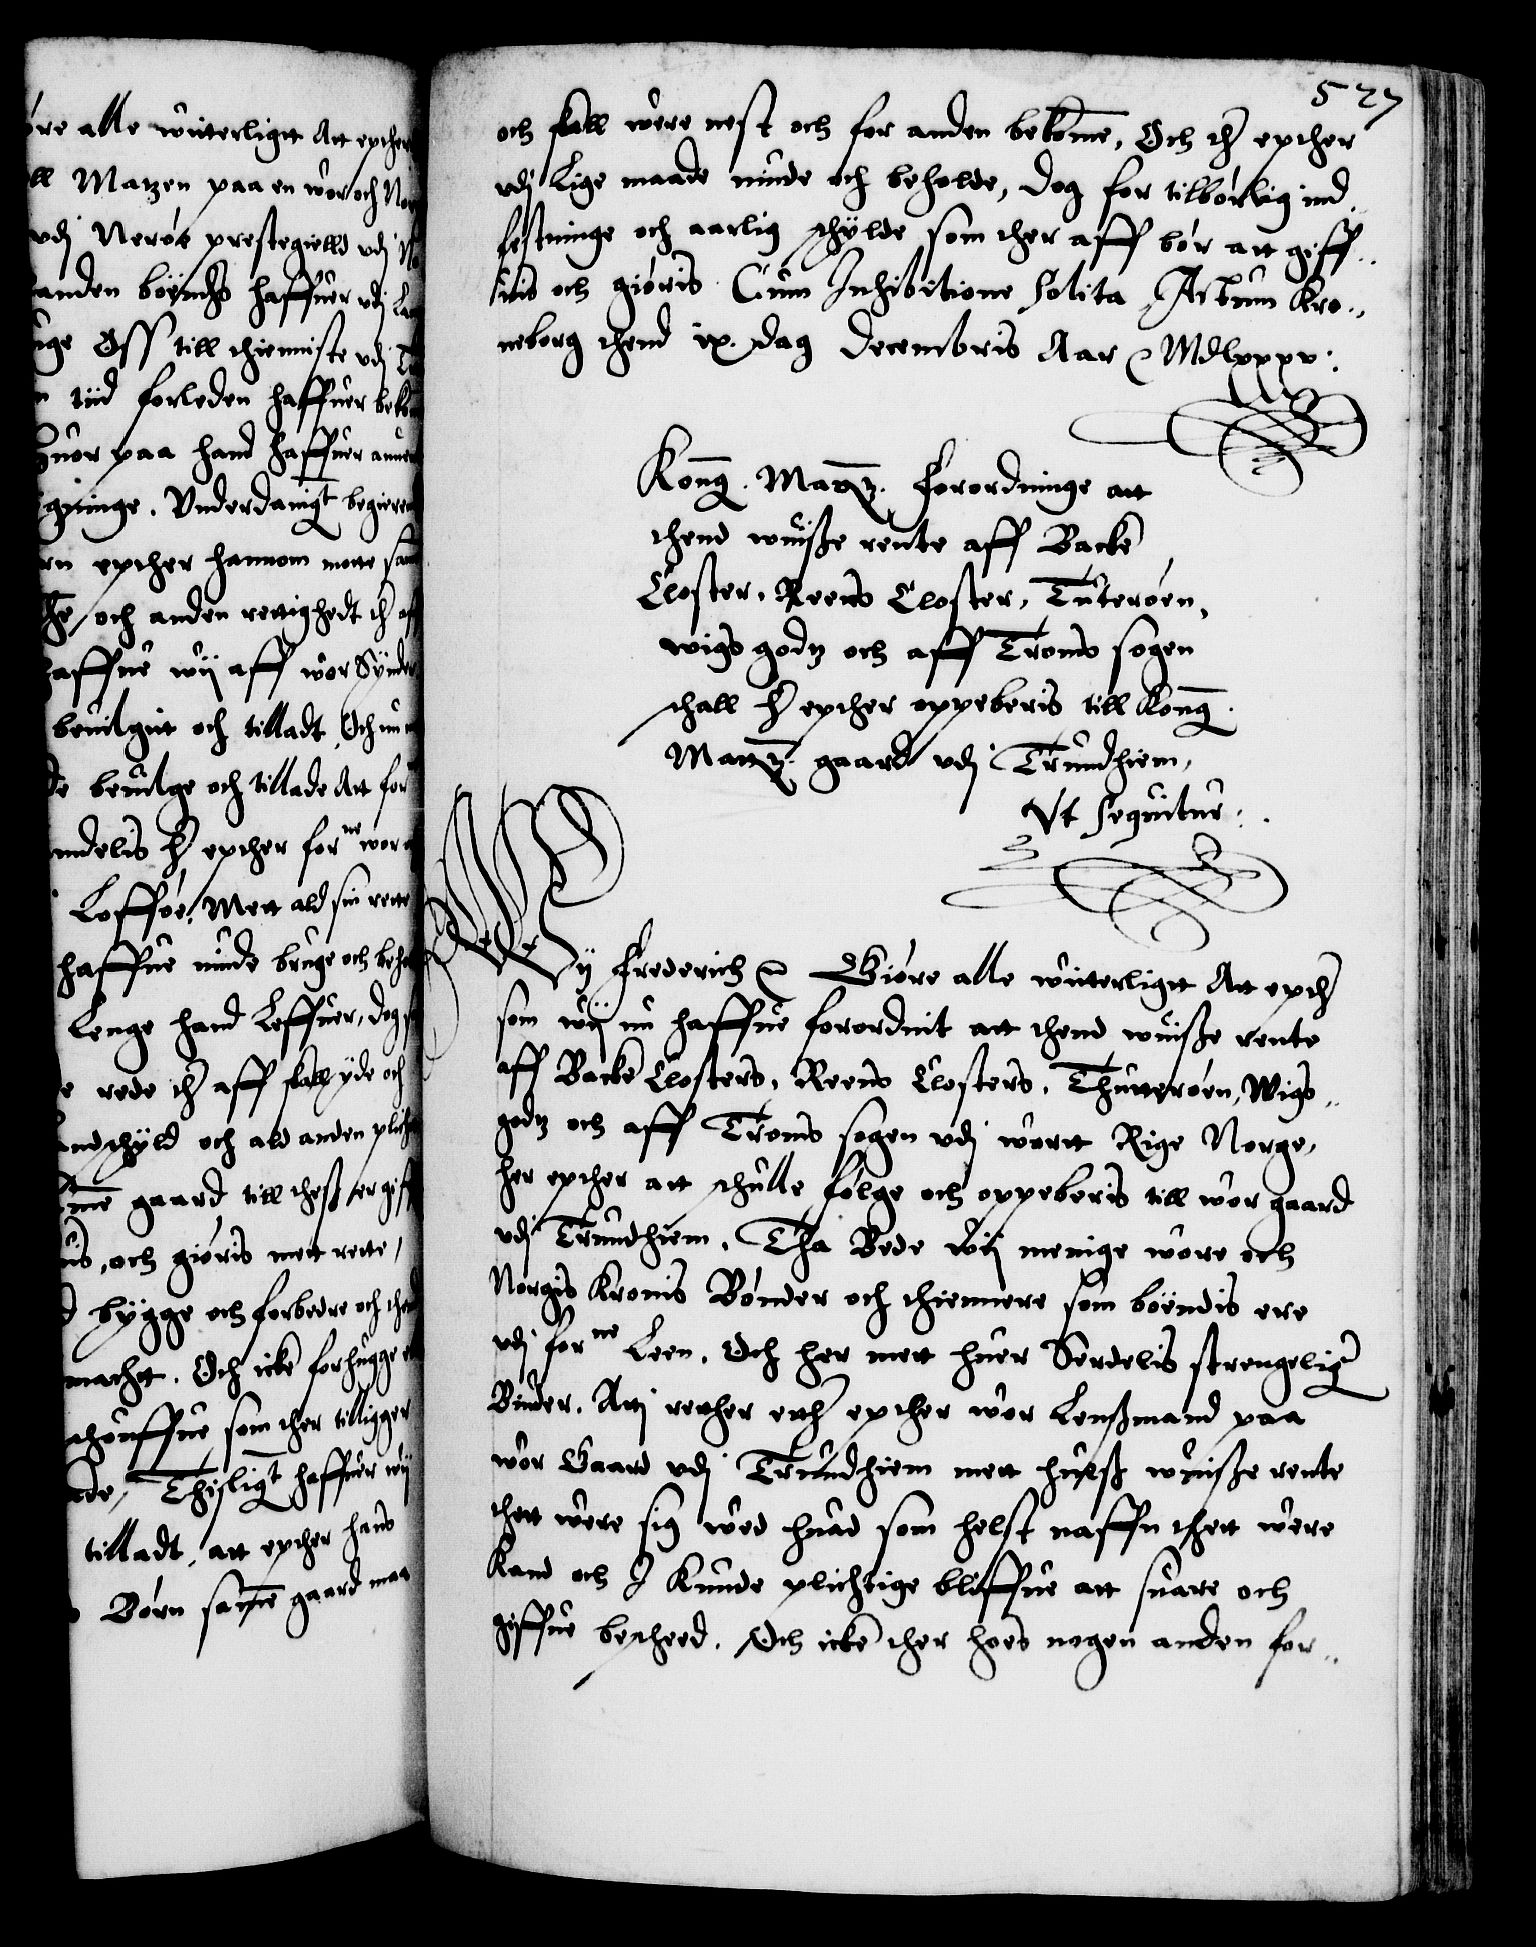 øre alle witterligtt Att epther
ll Matzen paa en wor och Nor
udj Nerøe prestegielld udj No
anden boendis haffuer udj La
uge Oss till thienniste udj
n tiid forleden haffuer bekom
huor paa hand haffuer anuen
gninge. Underdanigt begieren
rn epther hannom motte sam
the, och anden rettighedt ther aff
haffue wij aff wor Synder
beuilgitt och tilladt, Och nu
de beuilge och tillade Att for
indelis her epther forne wor
Lofføe, Mett ald sin rette
haffue niude bruge och beho
Lenge hand Leffuer, dog
e rede ther aff skall yde och
andschyld och ald anden plich
mme gaard till thess ergiff
uis, och giøris mett rette,
d bygge och forbedre och then
macht. Och icke forhugge
schouffue som ther tilligger
ade, Thisligt haffuer wij
tilladt, att epther hans
Børn samme gaard maa
527
och skall were nest och for anden bekomme, Och ther epther
udj Lige maade niude och beholde, dog for tilbørlig ind
festninge och aarlig schylde som ther aff bør att giff
uis och giøris Cum Inhibitione Solita Actum Kro
neborg thend ix. dag Decembris Aar &c Mdlxxxv.
Konng. Matz. Forordninge att
thend wuisse rente aff Backe
Closter, Reens Closter, Tuterøen,
wigs godz och aff Troms sogen
schall her epther oppeberis till Konng.
Mattz. gaard udj Trundhiem,
Ut Sequitur.
Wij Frederich &c Giøre alle witterligtt Att epther
som wij nu haffue forordnit att thend wuisse rente
aff Backe Closters, Reens Closters, Thutterøen, Wigs
godz och aff Troms sogen udj wortt Rige Norge,
her epther att schulle følge och oppeberis till wor gaard
udj Trundhiem. Tha Bede wij menige wore och
Norgis Kronis Bønder och thiennere som boendis ere
udj forne Leen. Och her mett huer Serdelis strengeligen
Biuder. Att j retther ether epther wor Lenssmand paa
wor Gaard udj Trundhiem mett huess wuisse rente
thett were sig wed huad som helst naffn thett were
Kand och I Kunde plichtige bliffue att suare och
giffue bescheed. Och icke ther hoes nogen anden for